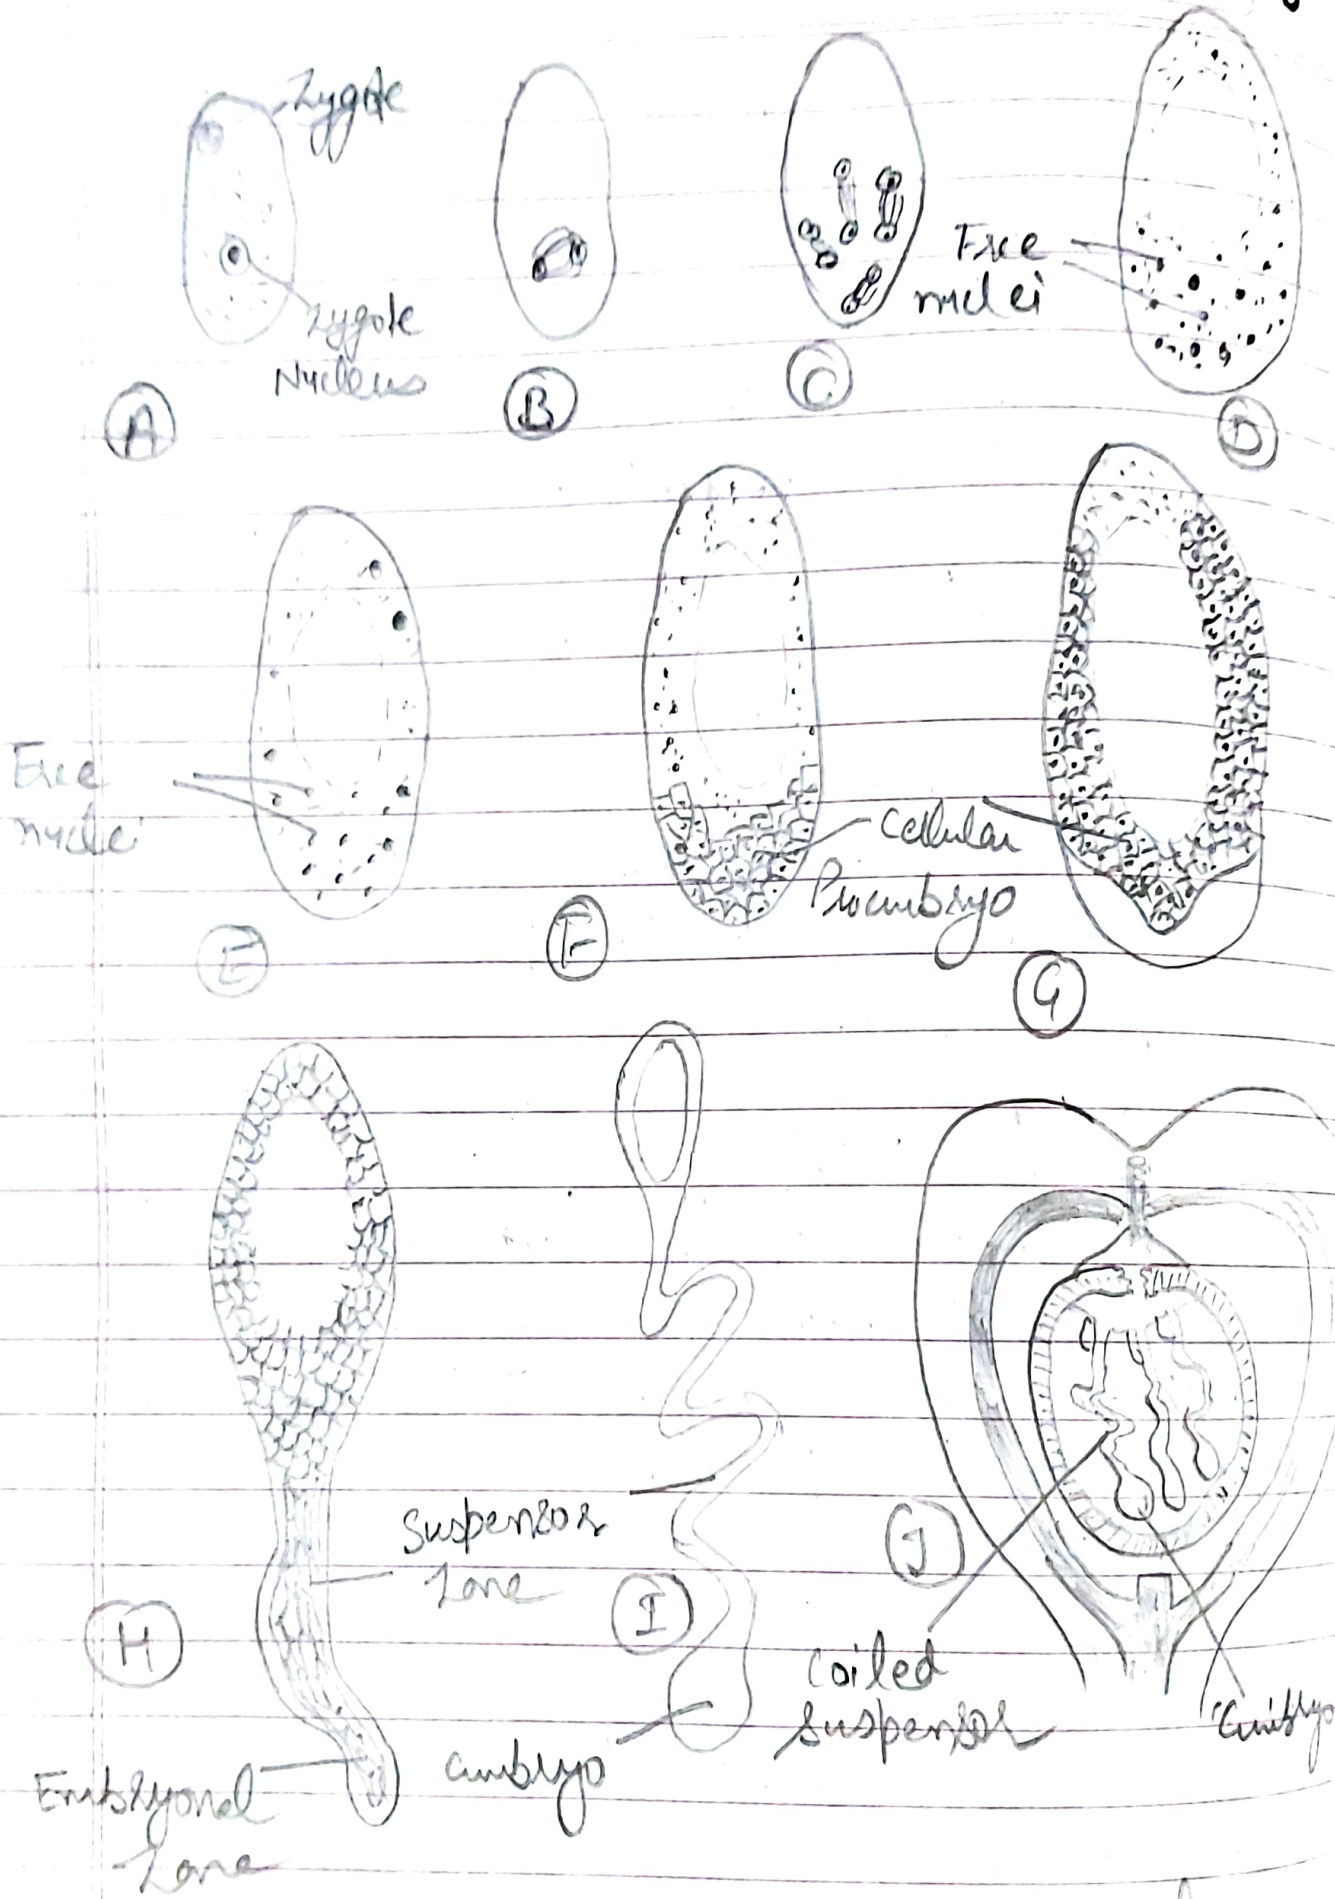 Zygote
Zygote
Nucleus
A
B
C
Free
nuclei
D
Free
nuclei
E
F
Cellular
Proembryo
G
Suspensor
Zone
H
Embryonal
Zone
I
embryo
J
Coiled
suspensor
embryo